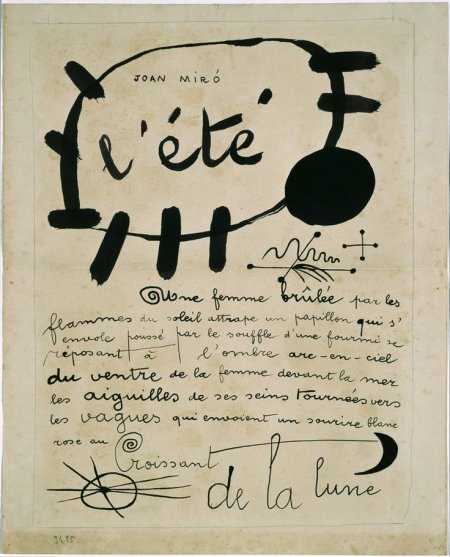 JOAN MIRÓ
l'été
Une femme brûlée par les
flammes du soleil attrape un papillon qui s'
envole poussé par le souffle d'une fourmi se
réposant à l'ombre arc-en-ciel
du ventre de la femme devant la mer
les aiguilles de ses seins tournées vers
les vagues qui envoient un sourire blanc
rose au Croissant
de la lune